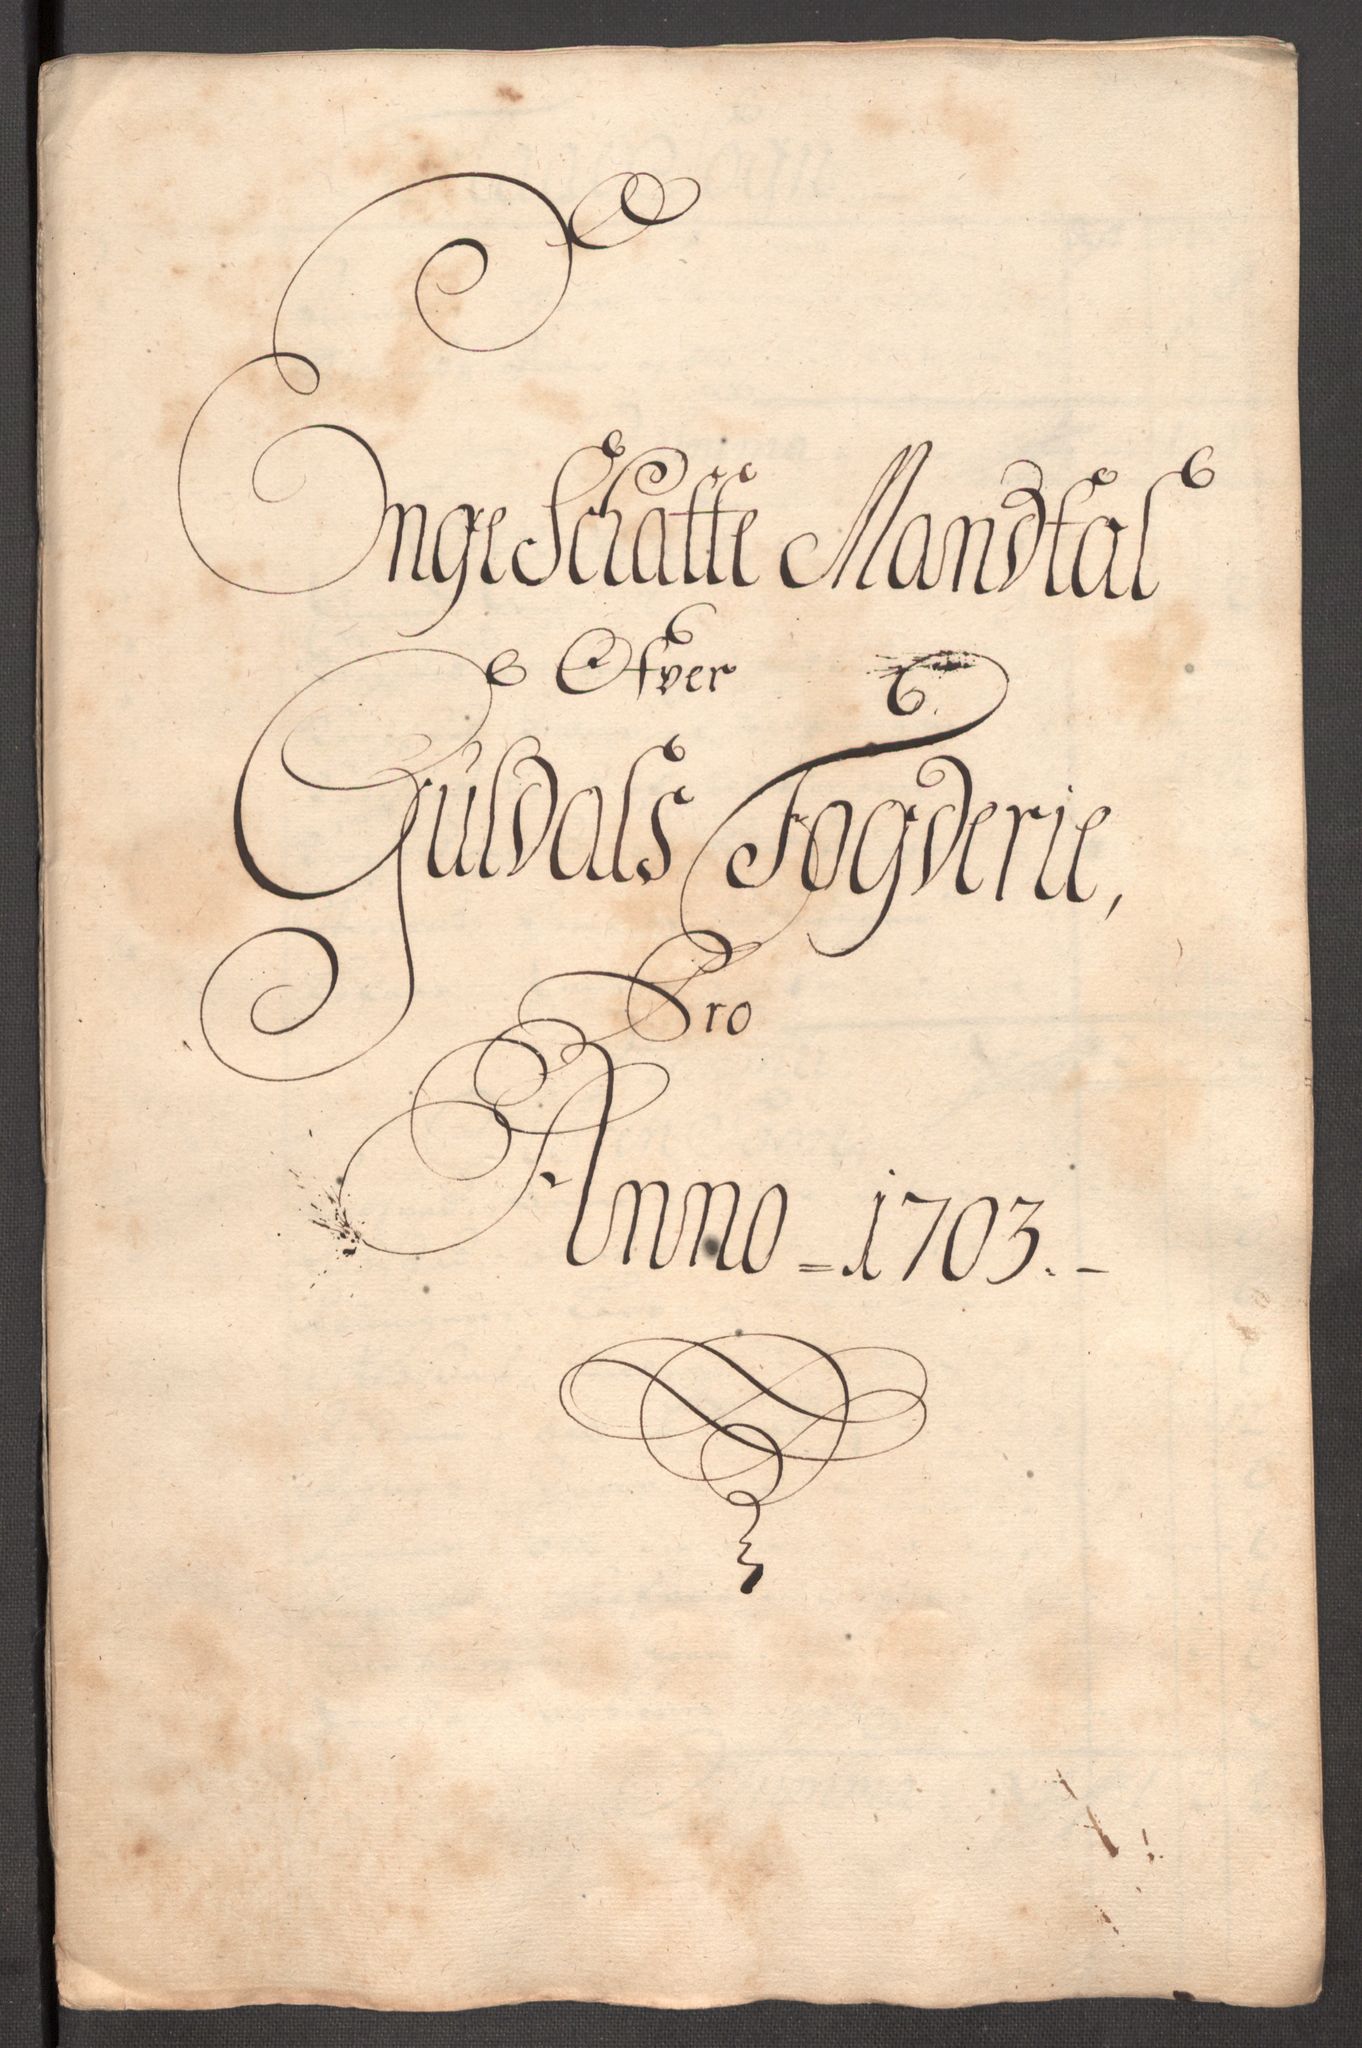 EngeSchatte Mandtal
Ofver
Guldals Fogderie,
Pro
Anno = 1703. -